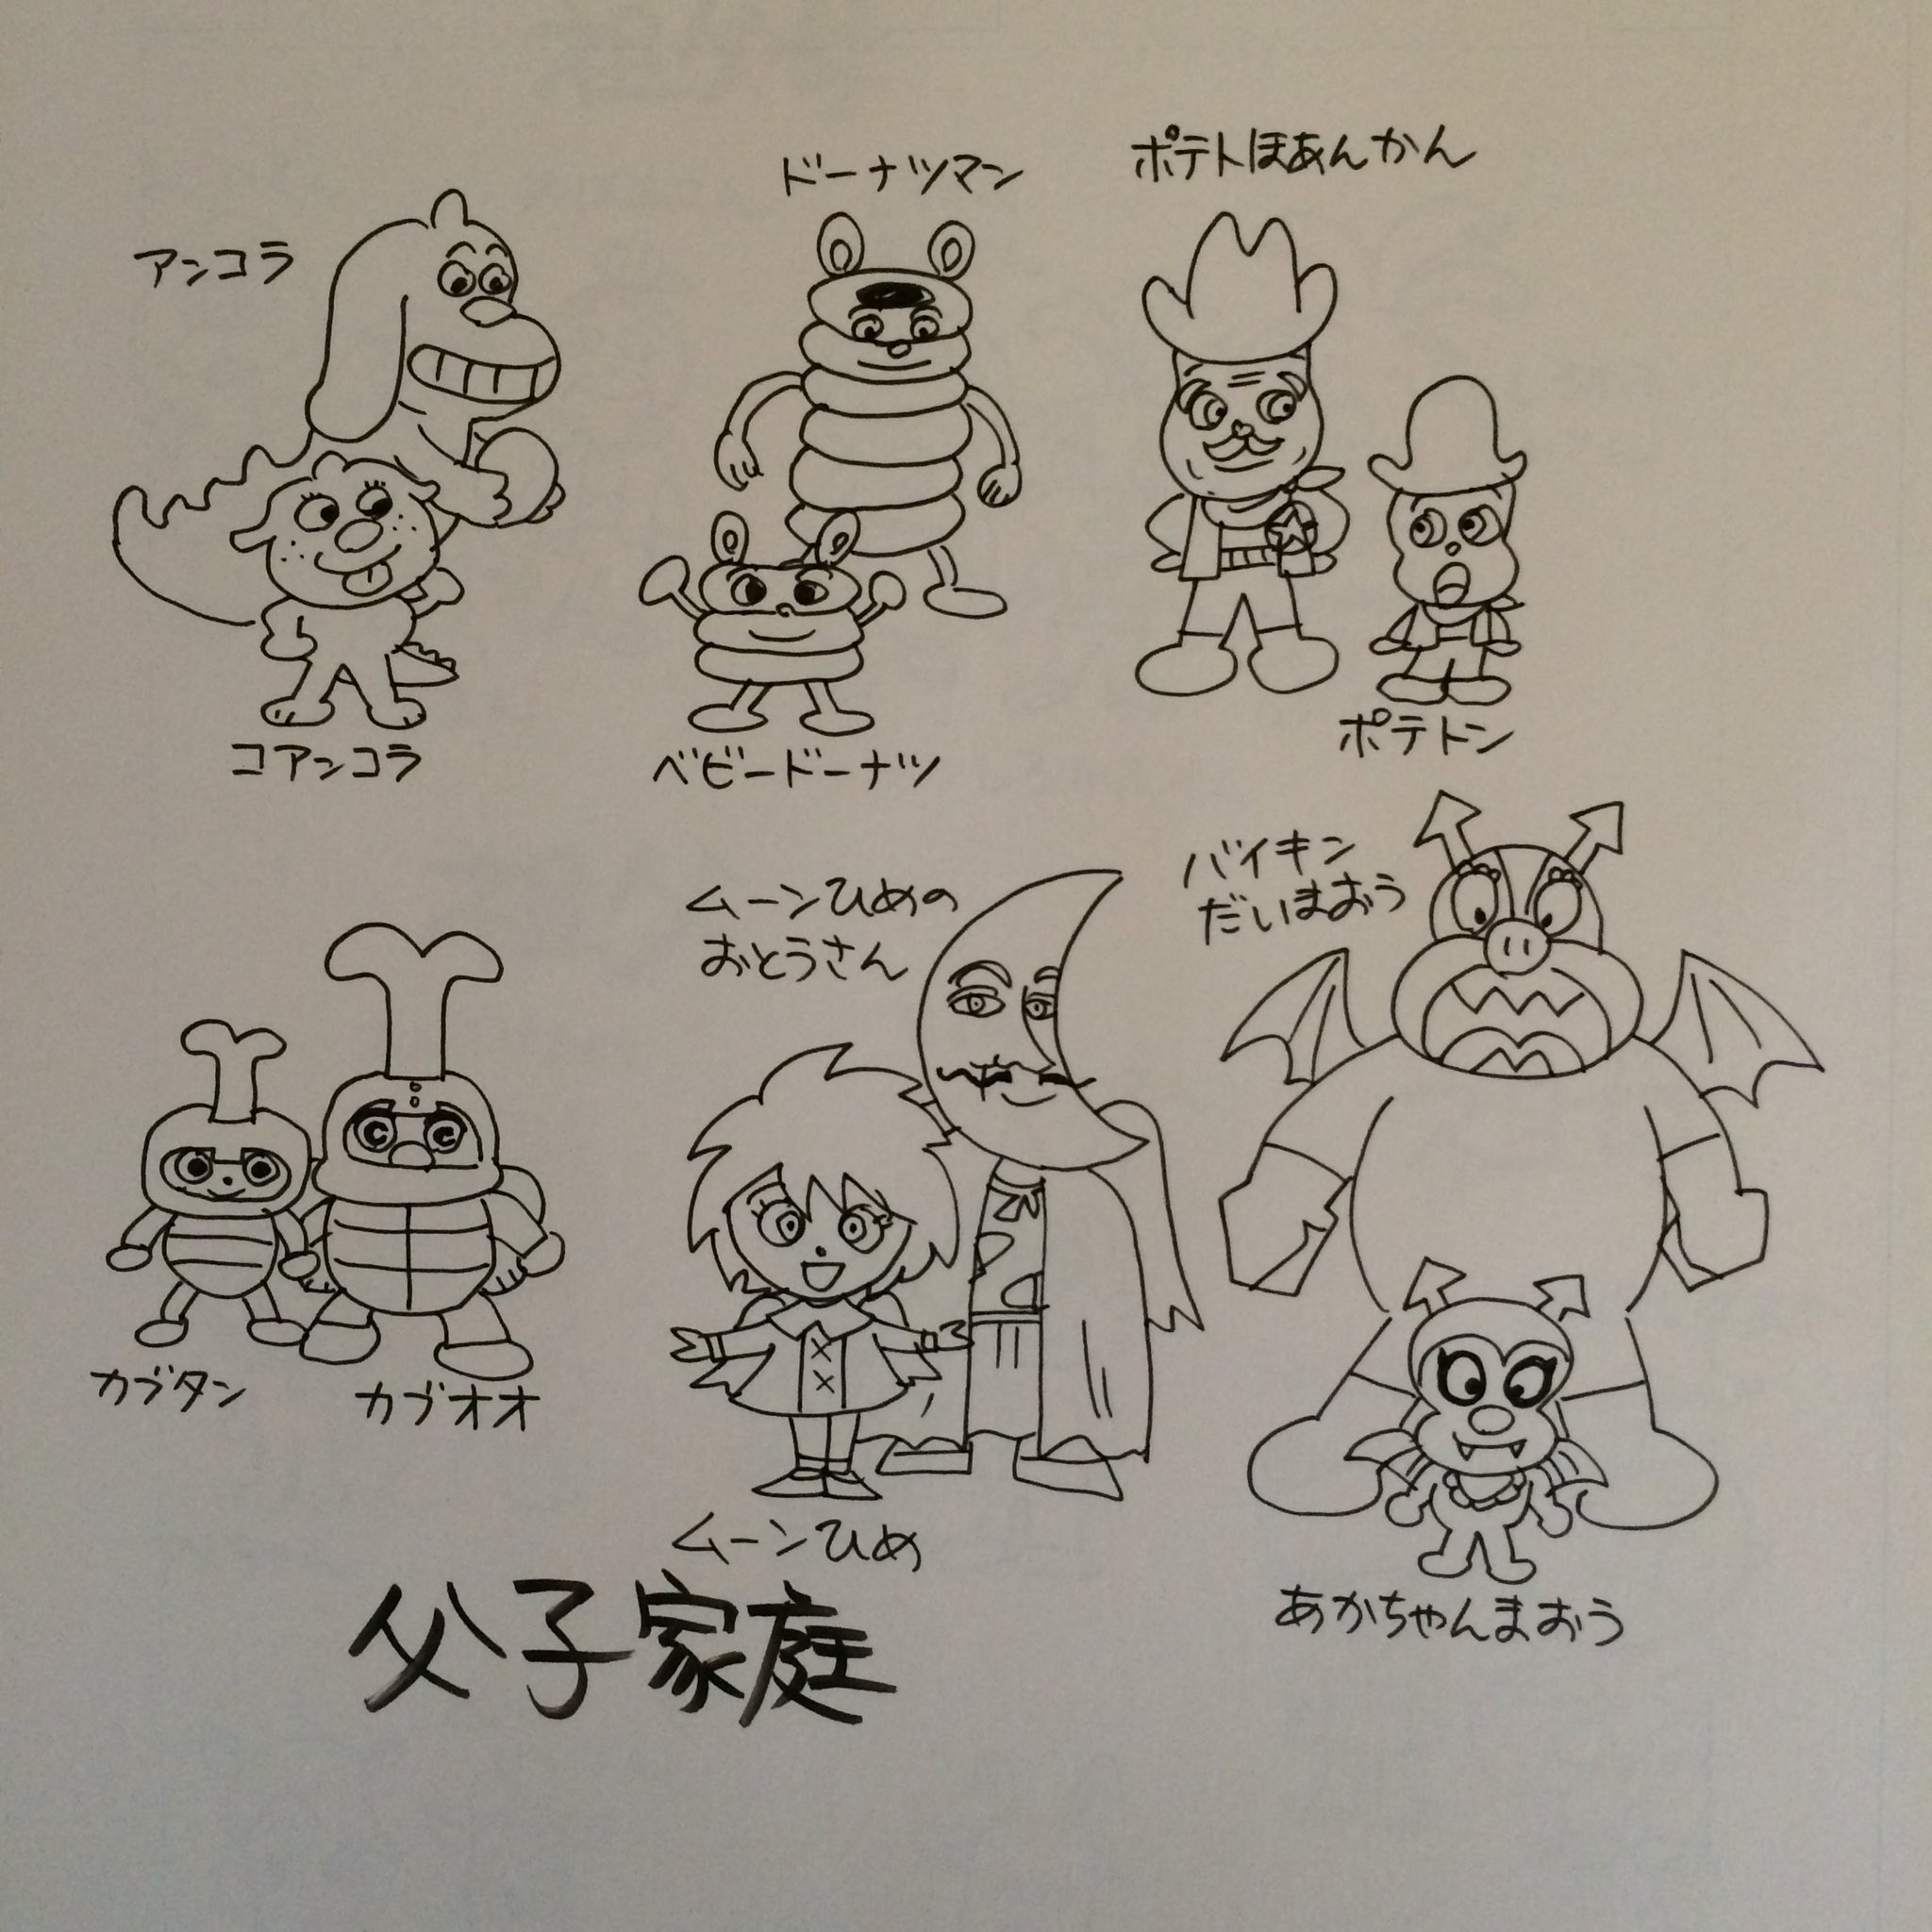 アンコラ
コアンコラ
ドーナツマン
ベビードーナツ
ポテトほあんかん
ポテトン
カブタン
カブオオ
ムーンひめの
おとうさん
ムーンひめ
バイキン
だいまおう
あかちゃんまおう
父子家庭